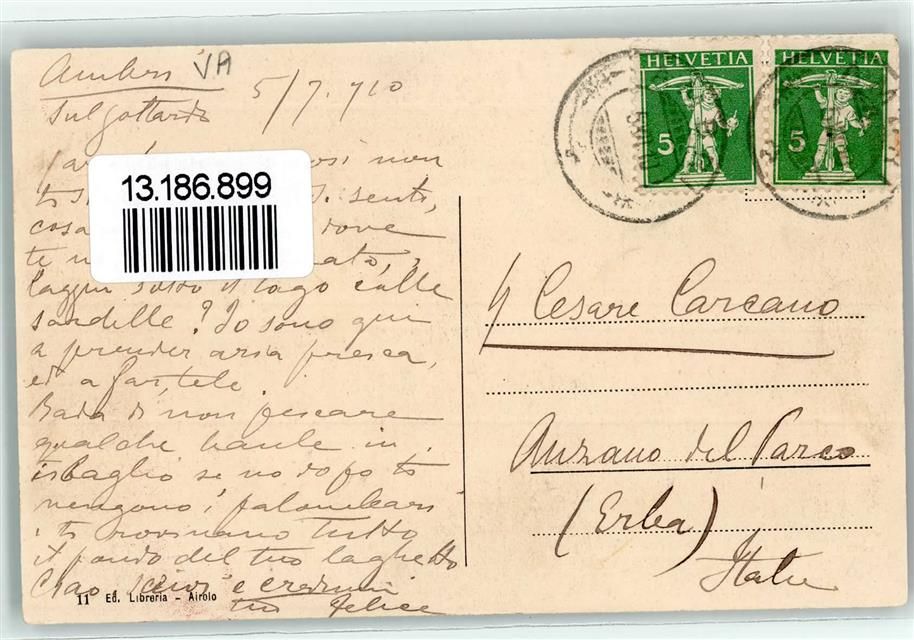 VA
5/7.910
sul Gottardo
13.186.899
così non
senti,
cosa dove
te
laggiù sotto il lago colle
sardelle? Io sono qui
a prender aria fresca,
ed a fartele.
Bada di non pescare
qualche baule in
isbaglio se no dopo ti
vengono i palombari
ti rovinano tutto
il fondo del tuo laghetto
Ciao, scrivi e credimi
tuo Felice
11 Ed. Libreria - Airolo
HELVETIA
5
HELVETIA
5
Cesare Carcano
Anzano del Parco
(Erba)
Italie